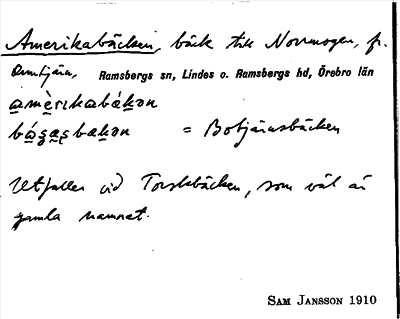 Amerikabäcken, bäck till Norrmogen, fr.
Ramsbergs sn, Lindes o. Ramsbergs hd, Örebro län
= Botjärnsbäcken
Utfaller vid Torskbäcken, som väl är
gamla namnet.
SAM JANSSON 1910